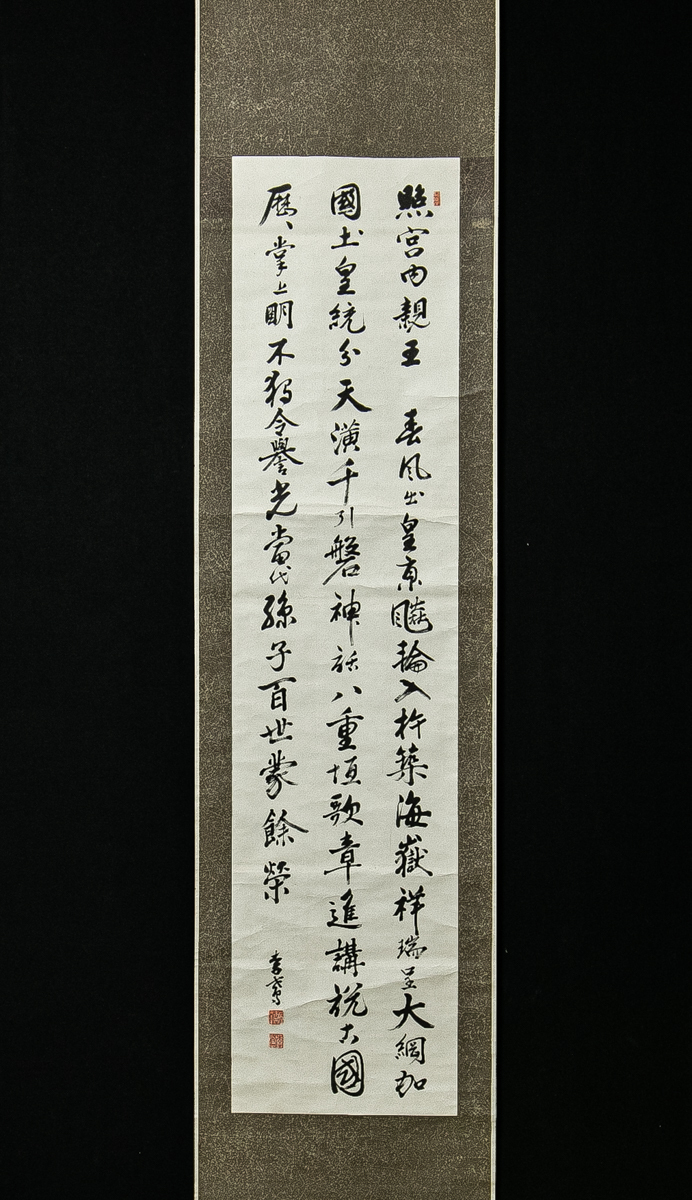 照宮内親王 春風出皇京飈輪入杵築海嶽祥瑞呈大綱加
國土皇統分天潢千引磐神話八重垣歌章進講説古國
歴、掌上明不独令譽光當代孫子百世蒙餘榮